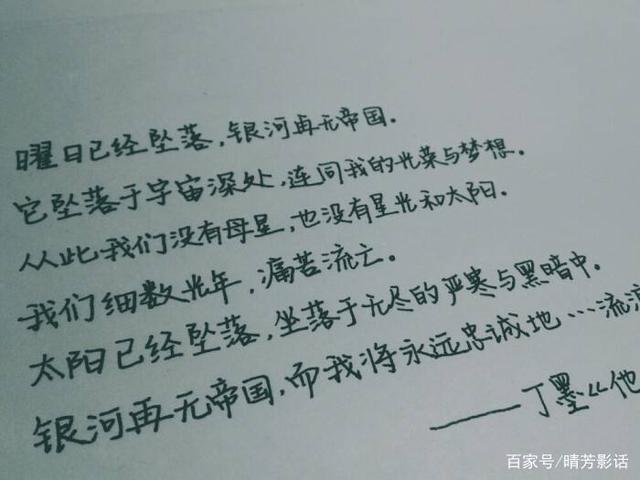 曜日已经坠落，银河再无帝国。
它坠落于宇宙深处，连同我的光荣与梦想。
从此我们没有母星，也没有星光和太阳。
我们细数光年，痛苦流亡。
太阳已经坠落，坐落于无尽的严寒与黑暗中。
银河再无帝国，而我将永远忠诚地…流
——丁墨《他
百家号/晴芳影话